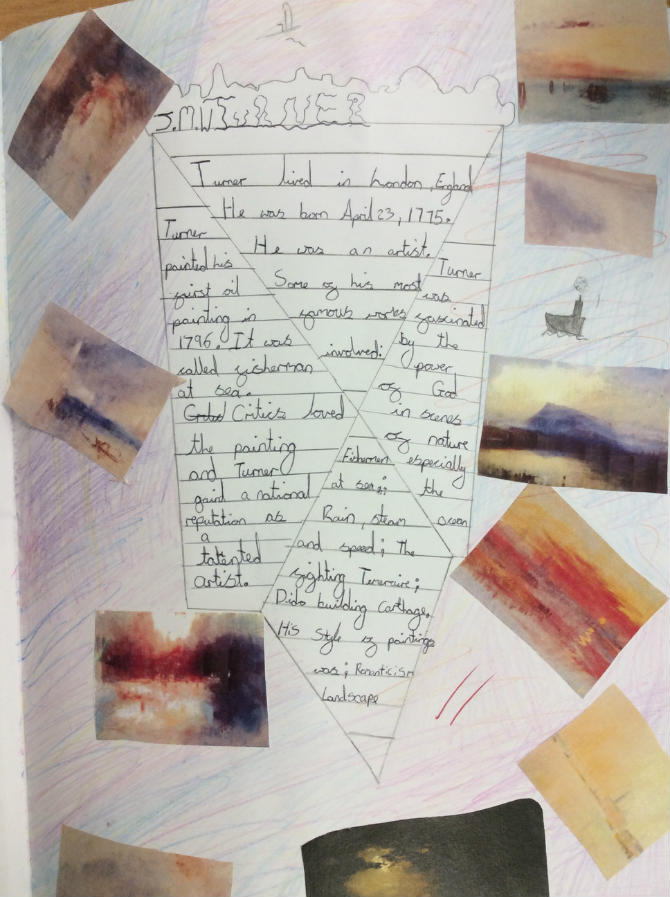 J.M.W TURNER
Turner lived in London, England
He was born April 23, 1775.
He was an artist.
Some of his most
famous works
involved:
Fishermen
at sea;
Rain, steam
and speed; The
fighting Temeraire;
Dido building Carthage.
His style of paintings
was; Romanticism
Landscape
Turner
painted his
first oil
painting in
1796. It was
called fisherman
at sea.
Critics loved
the painting
and Turner
gaint a national
reputation as
a
talented
artist.
Turner
was
fascinated
by the
power
of God
in scenes
of nature
especially
the
ocean